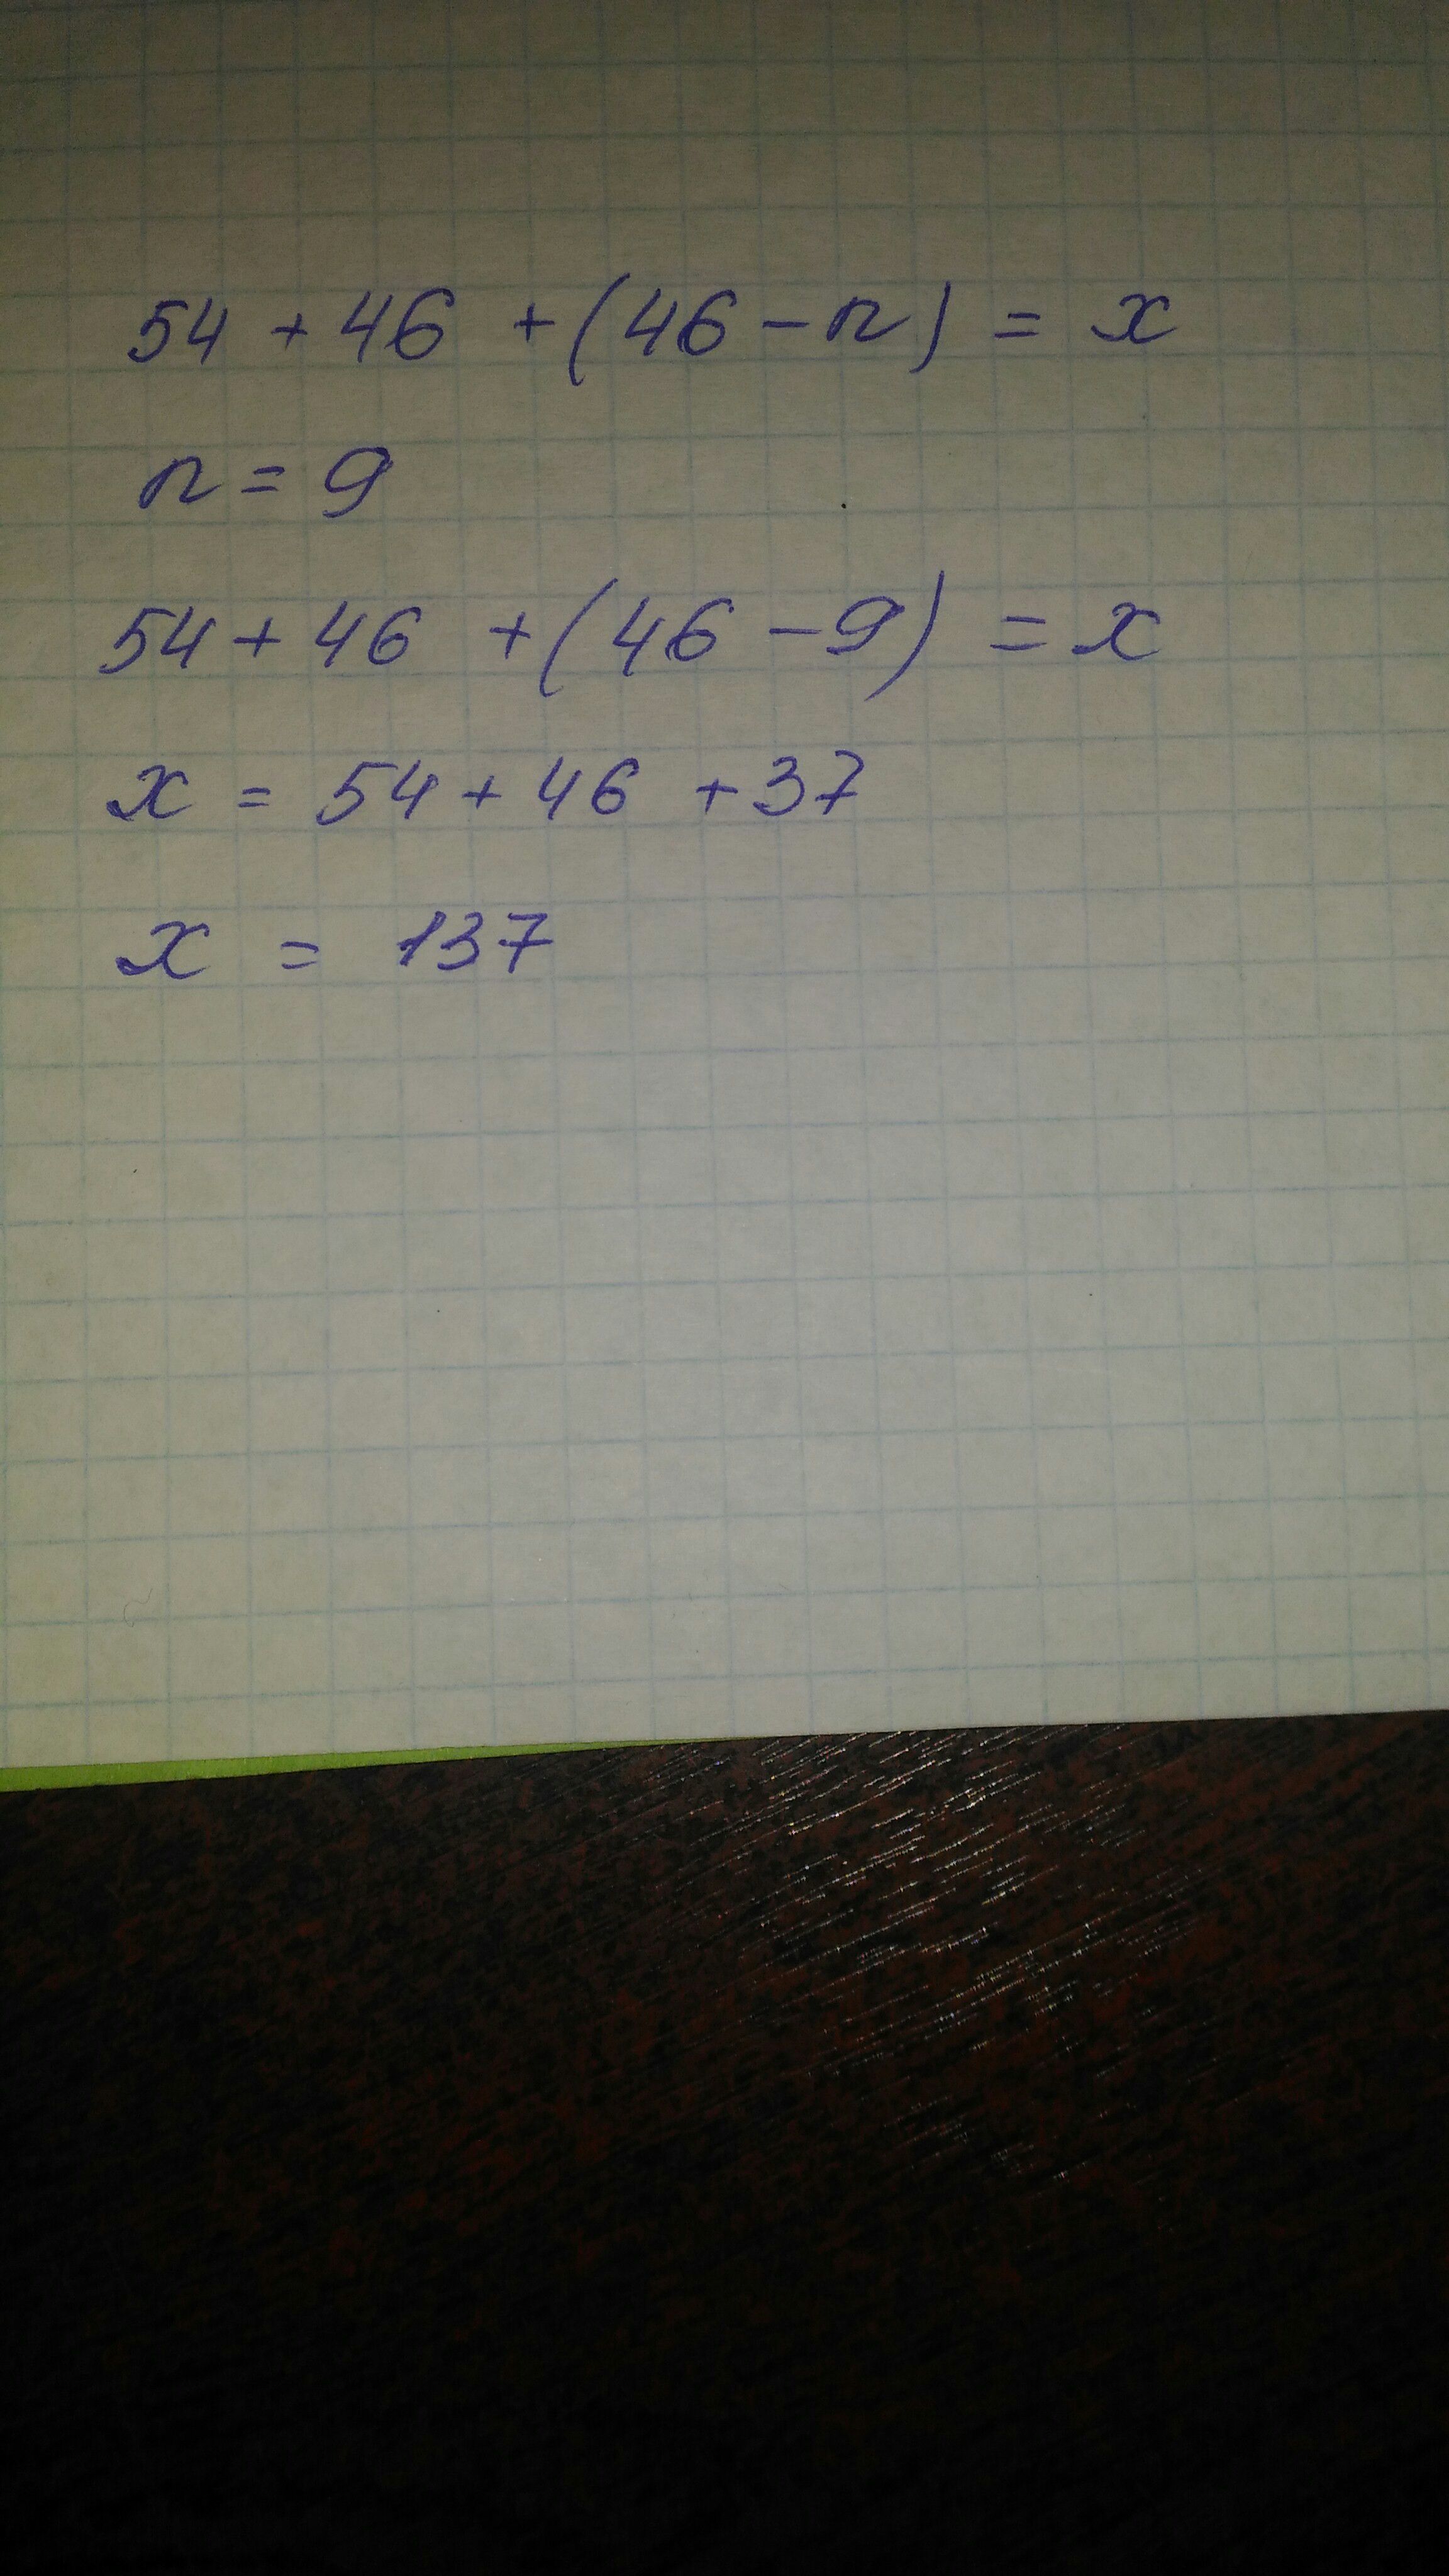 54 + 46 + (46 - n) = x
n = 9
54 + 46 + (46 - 9) = x
x = 54 + 46 + 37
x = 137